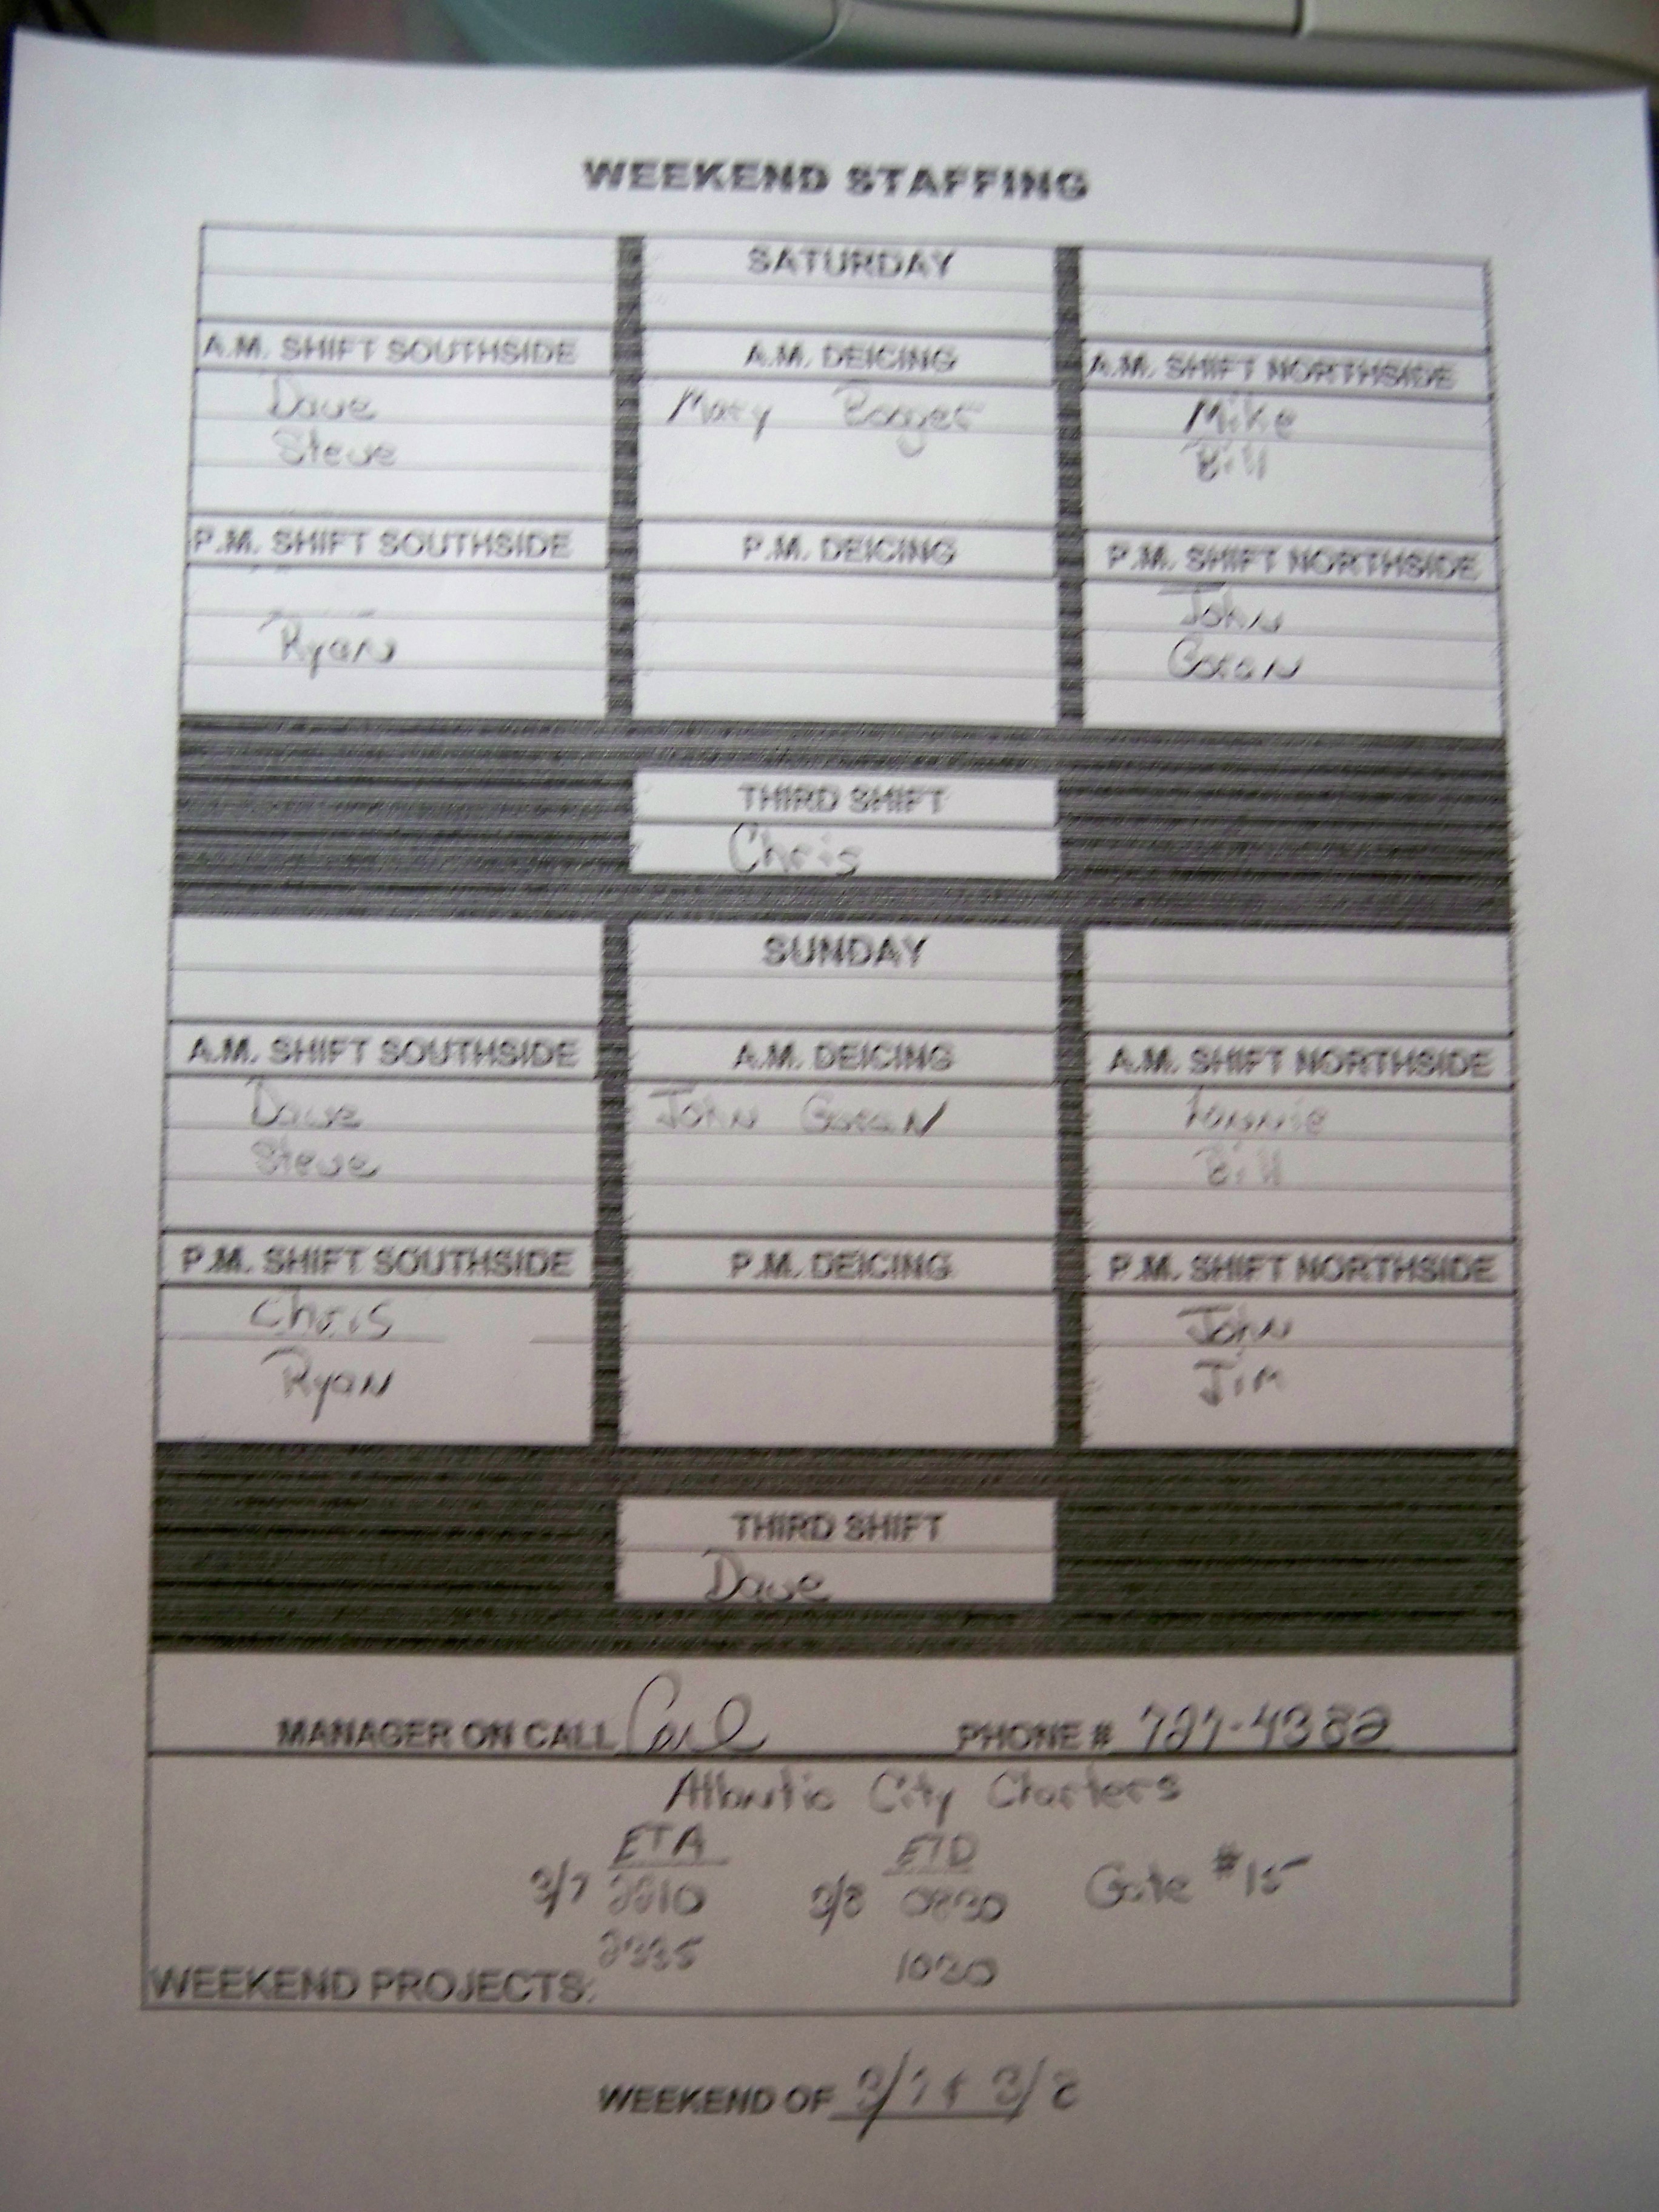 WEEKEND STAFFING
SATURDAY
A.M. SHIFT SOUTHSIDE A.M. DEICING A.M. SHIFT NORTHSIDE
Dave Mike
Steve Bill
P.M. SHIFT SOUTHSIDE P.M. DEICING P.M. SHIFT NORTHSIDE
John
Ryan Goran
THIRD SHIFT
Chris
SUNDAY
A.M. SHIFT SOUTHSIDE A.M. DEICING A.M. SHIFT NORTHSIDE
Dave John Goran
Steve Bill
P.M. SHIFT SOUTHSIDE P.M. DEICING P.M. SHIFT NORTHSIDE
Chris John
Ryan Jim
THIRD SHIFT
Dave
MANAGER ON CALL Carl PHONE # 727-4382
Atlantic City Charters
ETA ETD
3/7 2210 3/8 0830 Gate #15
2335 1030
WEEKEND PROJECTS:
WEEKEND OF 3/7 + 3/8